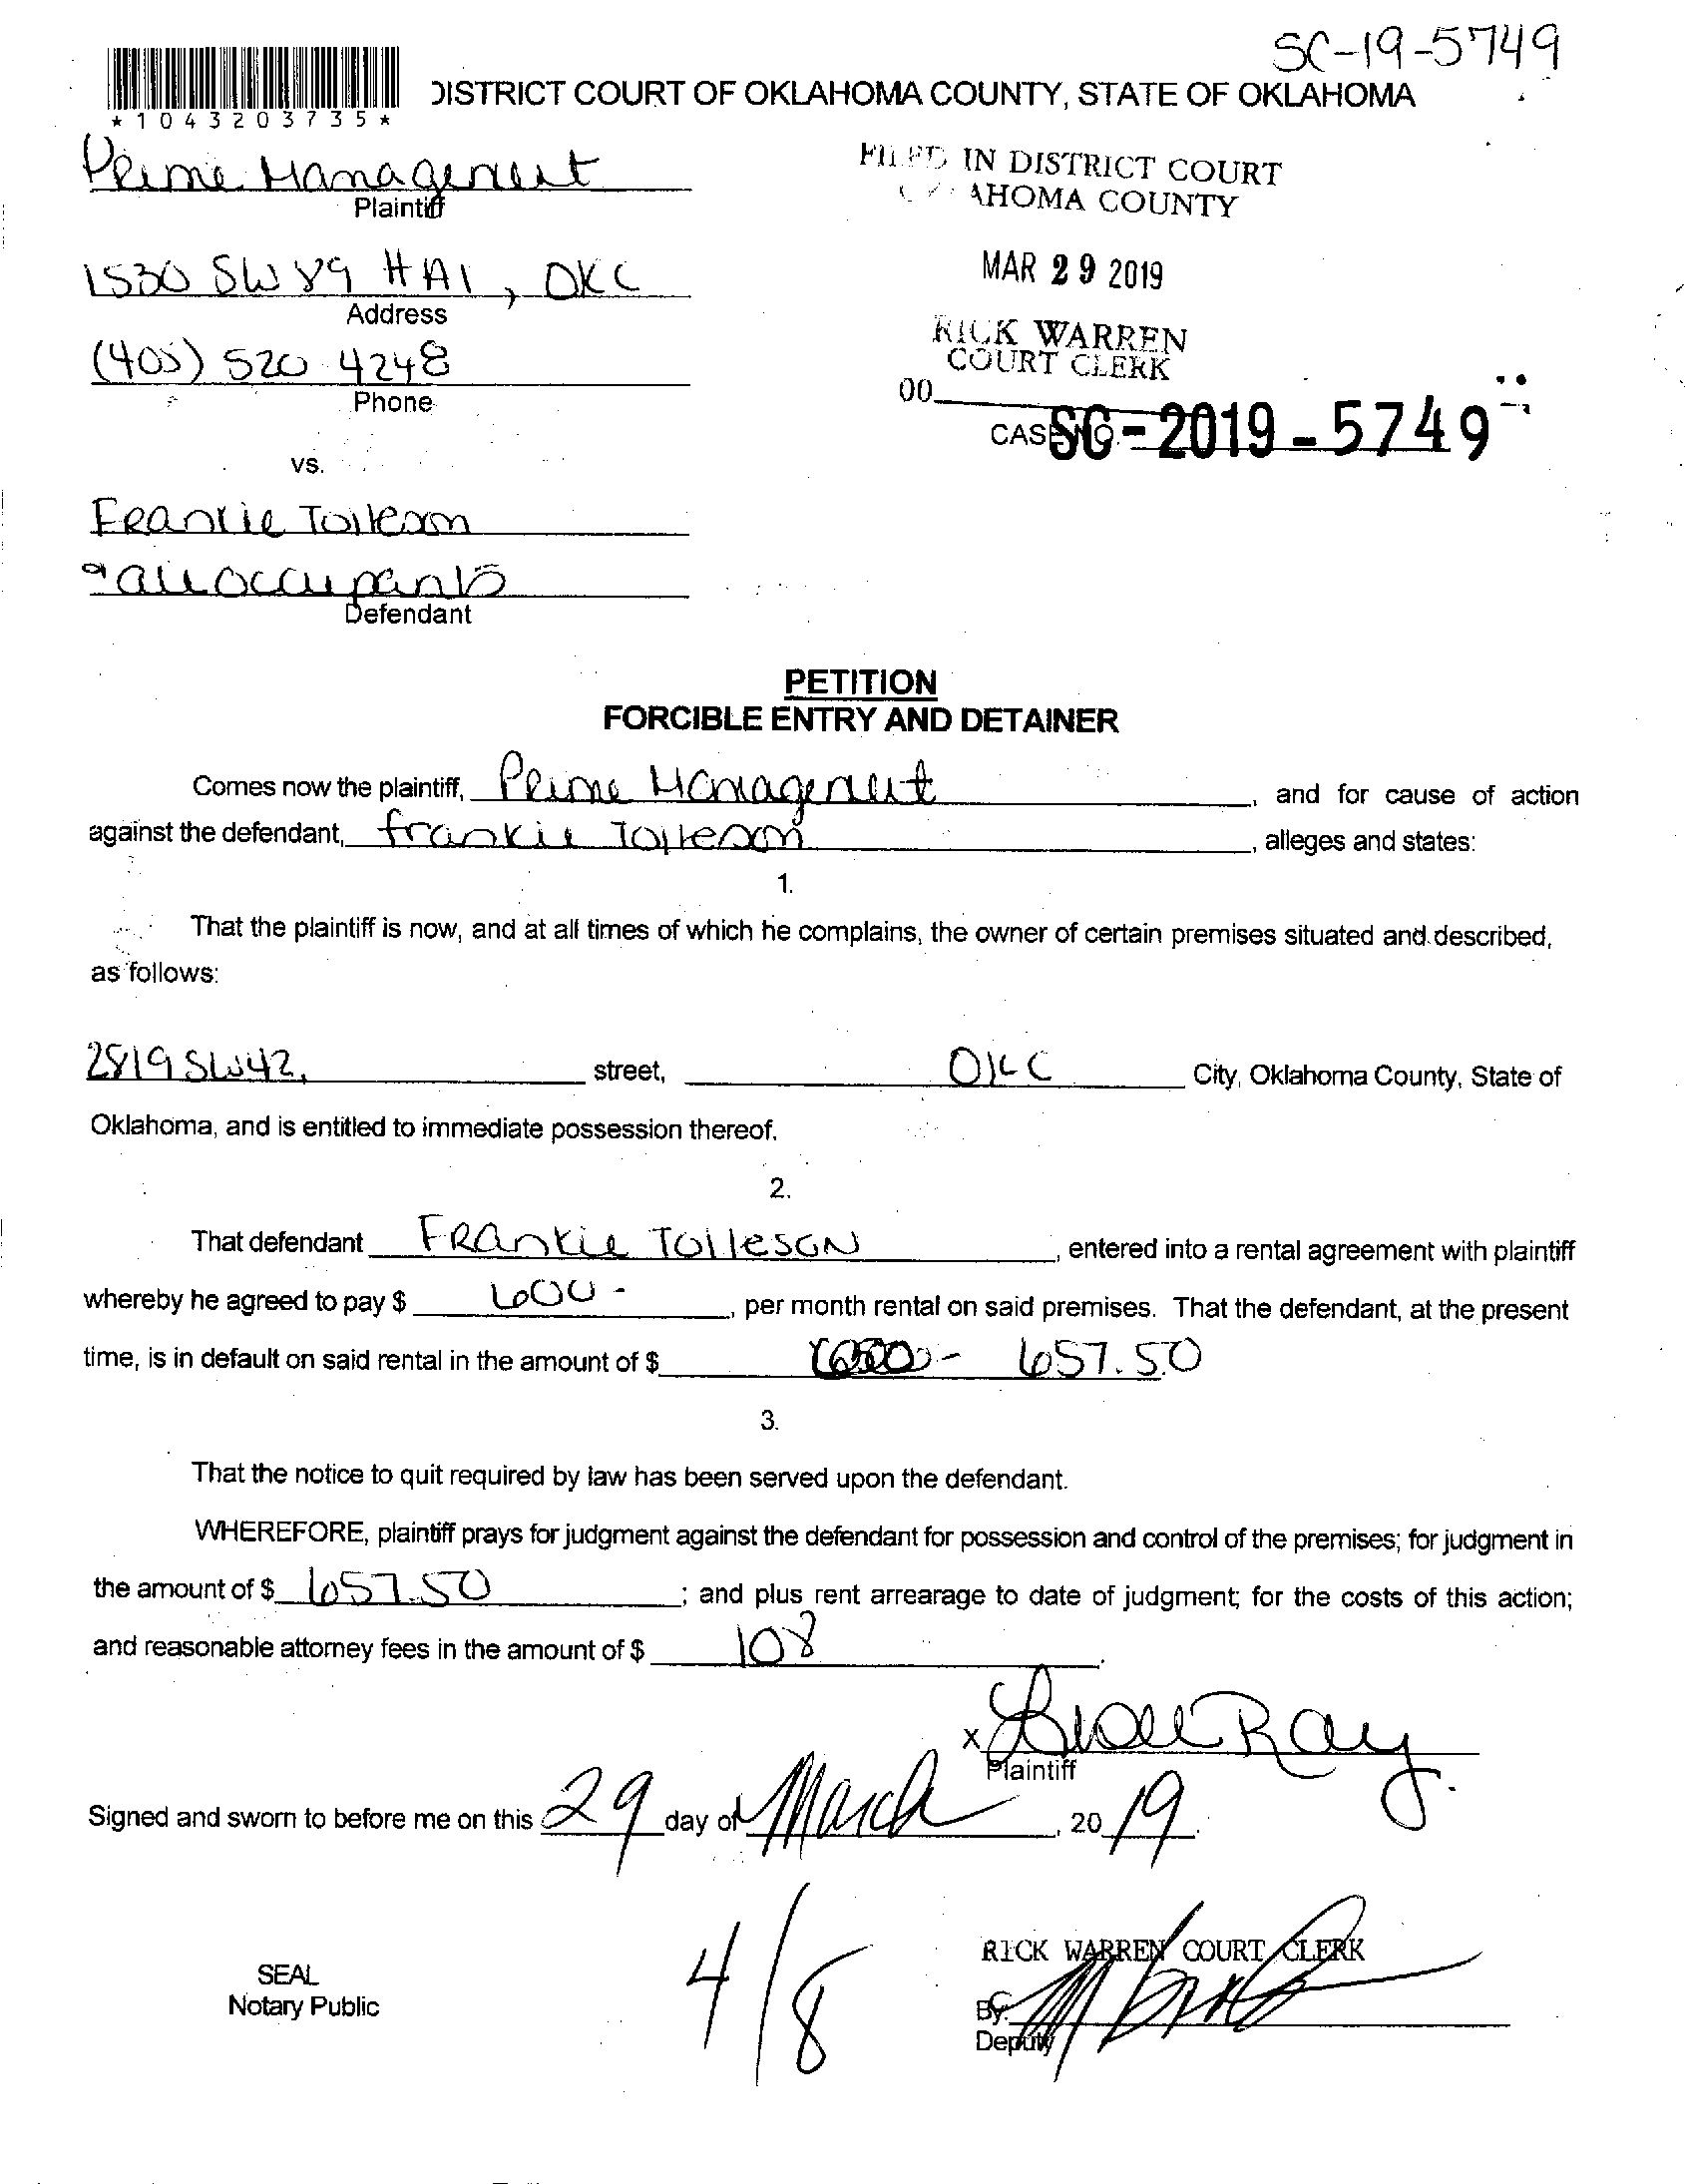 SC-19-5749
*1043203735*
DISTRICT COURT OF OKLAHOMA COUNTY, STATE OF OKLAHOMA
Prime Management
Plaintiff
FILED IN DISTRICT COURT
AHOMA COUNTY
1530 SW 89 # A1, OKC
Address
MAR 29 2019
(405) 520 4248
Phone
RICK WARREN
COURT CLERK
00
CASE NO. SC-2019-5749
vs.
Frankie Tolleson
& all occupants
Defendant
PETITION
FORCIBLE ENTRY AND DETAINER
Comes now the plaintiff, Prime Management, and for cause of action
against the defendant, Frankie Tolleson, alleges and states:
1.
That the plaintiff is now, and at all times of which he complains, the owner of certain premises situated and described,
as follows:
2819 SW 42, street, OKC City, Oklahoma County, State of
Oklahoma, and is entitled to immediate possession thereof.
2.
That defendant Frankie Tolleson, entered into a rental agreement with plaintiff
whereby he agreed to pay $ 600-, per month rental on said premises. That the defendant, at the present
time, is in default on said rental in the amount of $ 657.50
3.
That the notice to quit required by law has been served upon the defendant.
WHEREFORE, plaintiff prays for judgment against the defendant for possession and control of the premises; for judgment in
the amount of $ 657.50; and plus rent arrearage to date of judgment; for the costs of this action;
and reasonable attorney fees in the amount of $ 108.
x Ray
Plaintiff
Signed and sworn to before me on this 29 day of March, 2019.
4/8
RICK WARREN COURT CLERK
SEAL
Notary Public
By:
Deputy